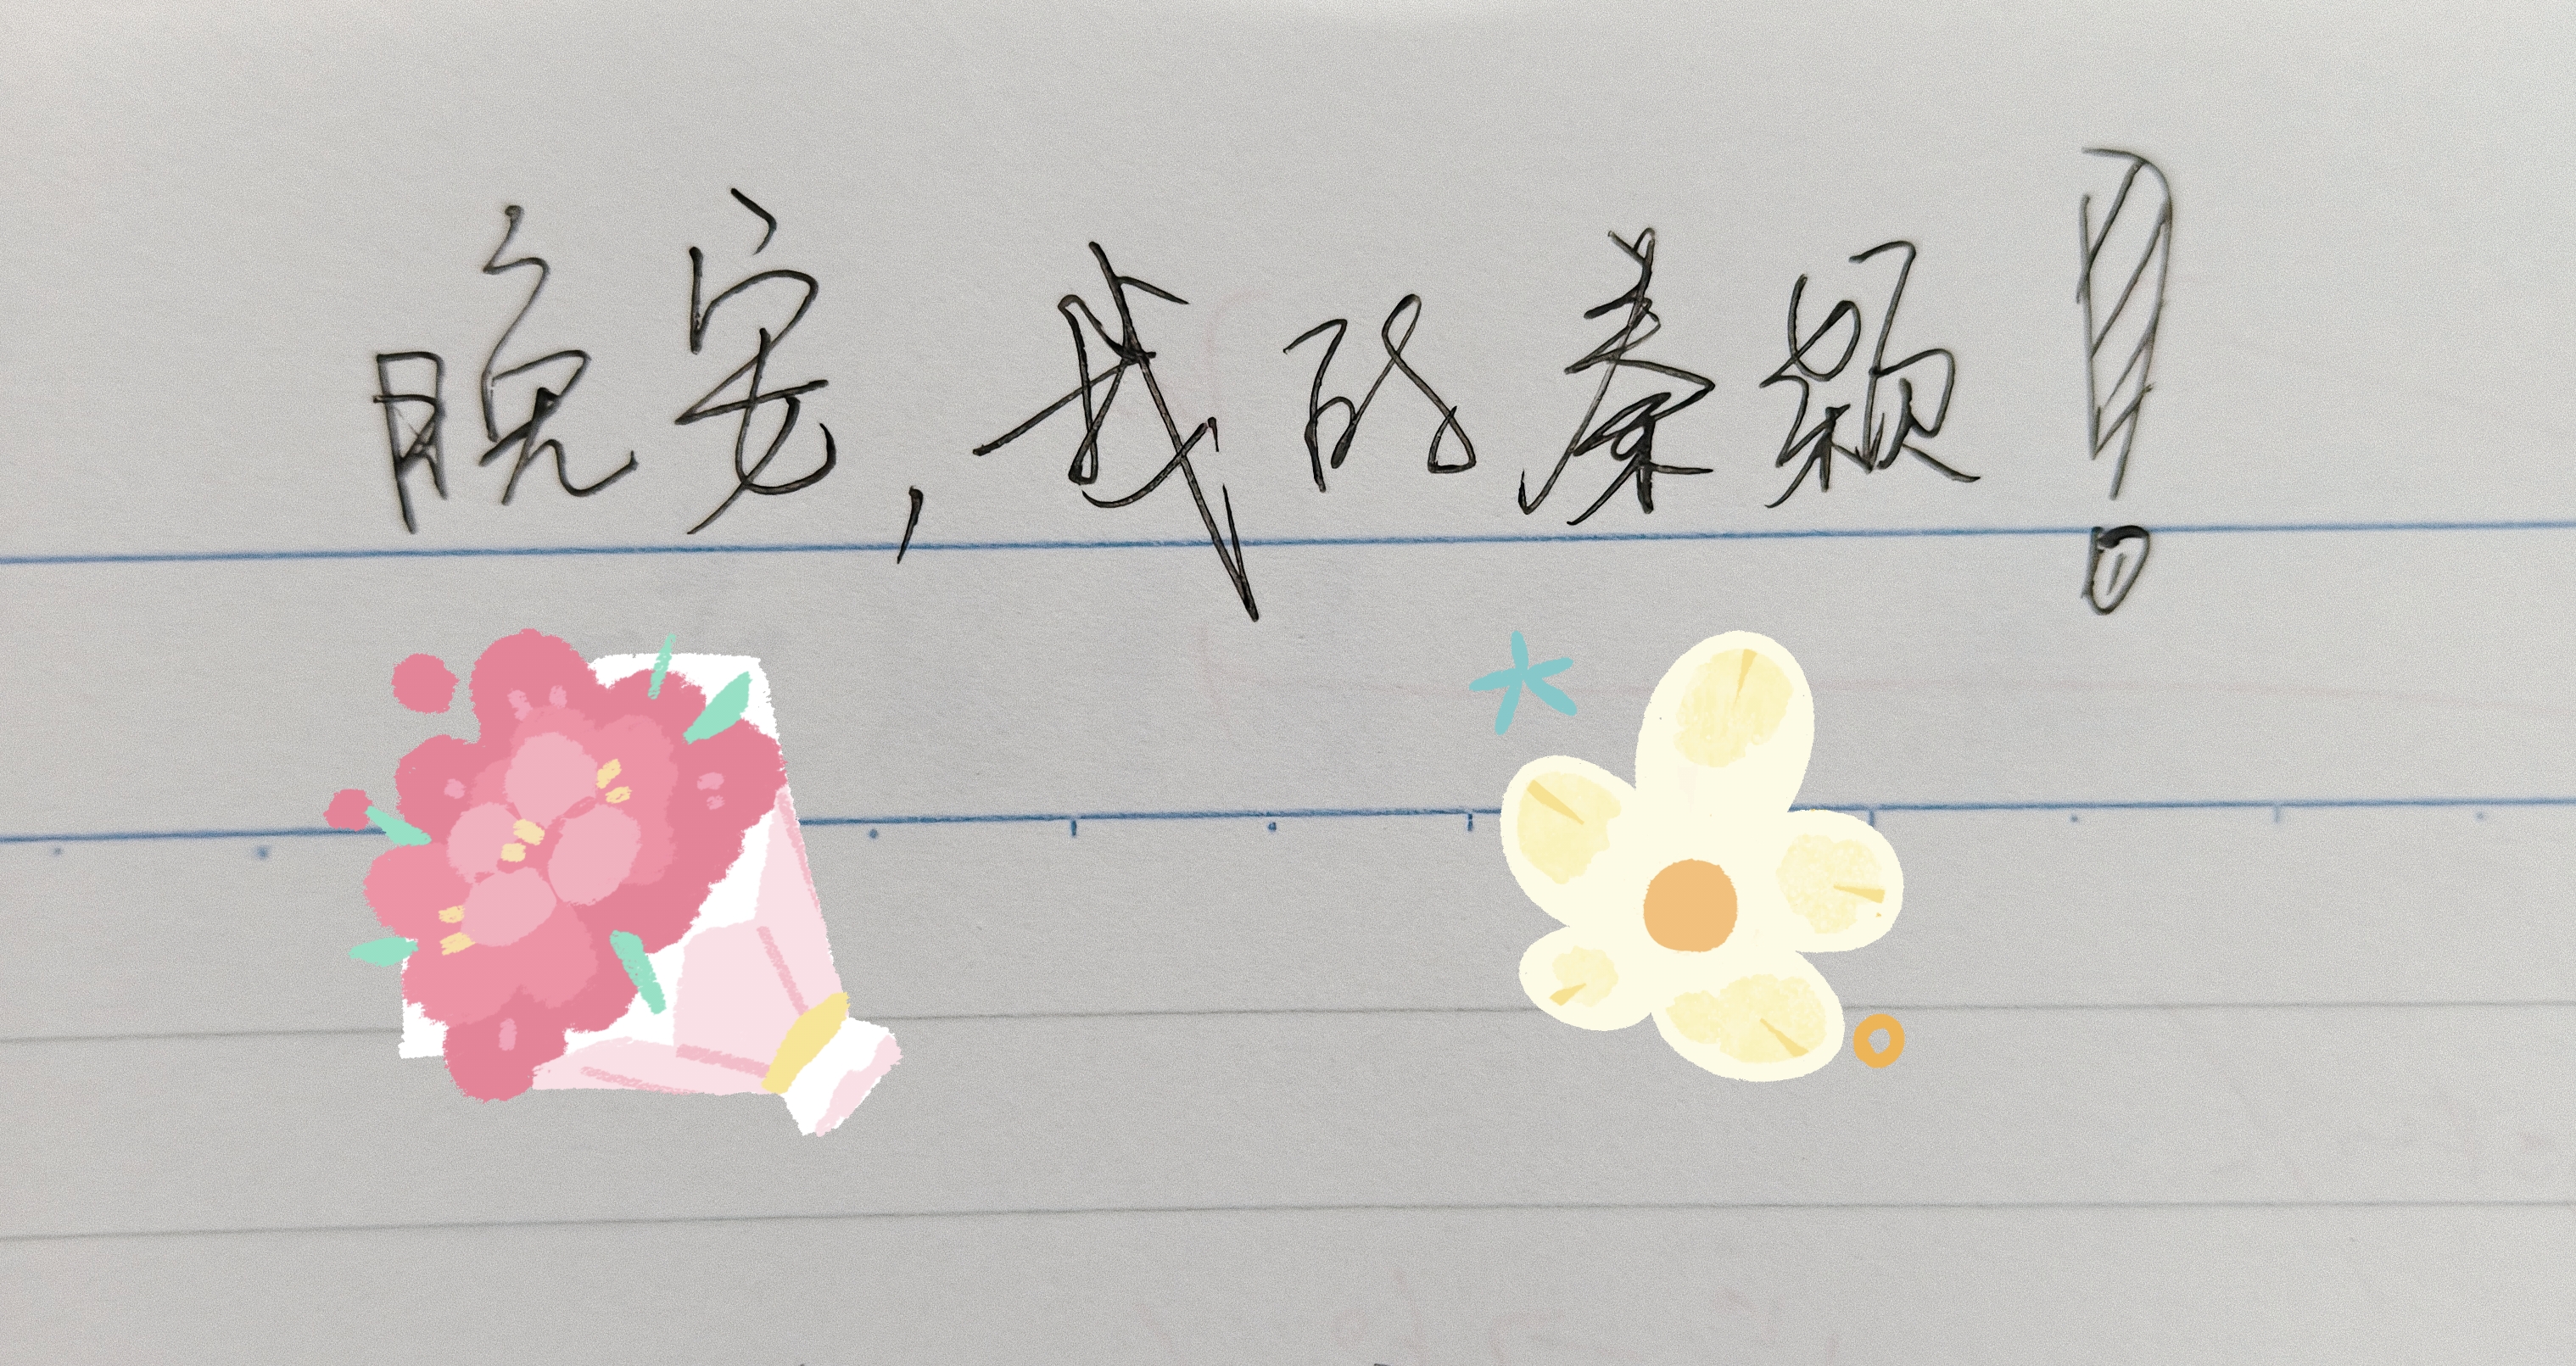 晚安,我的秦颖!